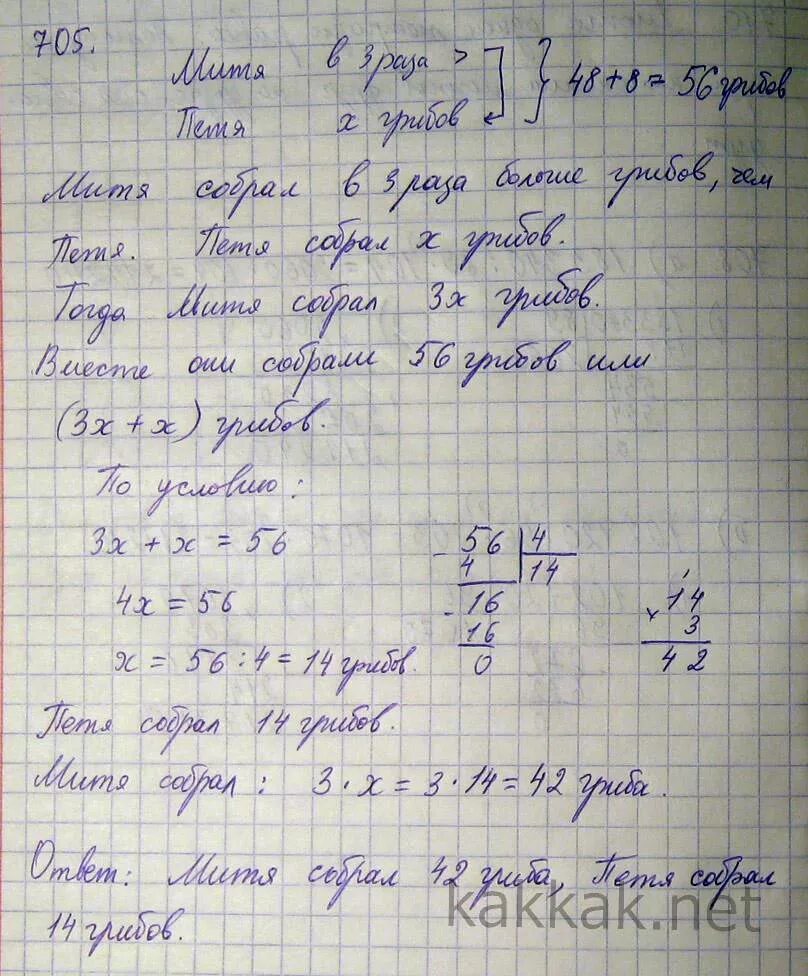 705.
Митя в 3 раза >
Петя х грибов
48 + 8 = 56 грибов
Митя собрал в 3 раза больше грибов, чем
Петя. Петя собрал х грибов.
Тогда Митя собрал 3х грибов.
Вместе они собрали 56 грибов или
(3х + х) грибов.
По условию:
3х + х = 56
4х = 56
х = 56 : 4 = 14 грибов.
- 56 | 4
4 14
- 16
16
0
1
× 14
3
42
Петя собрал 14 грибов.
Митя собрал: 3 · х = 3 · 14 = 42 гриба.
Ответ: Митя собрал 42 гриба, Петя собрал
14 грибов.
kakkak.net